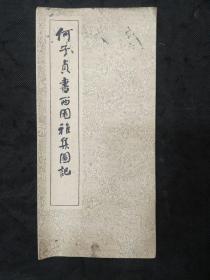 何子贞書西園雅集圖記